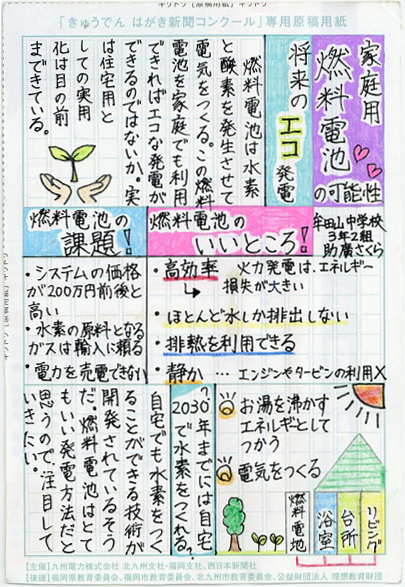 「きゅうでん はがき新聞コンクール」専用原稿用紙
家庭用
燃料電池
の可能性
将来のエコ発電
牟田山中学校
3年2組
助廣さくら
燃料電池は水素
と酸素を発生させて
電気をつくる。この燃料
電池を家庭でも利用
できればエコな発電が
できるのではないか。実
は住宅用と
しての実用
化は目の前
まできている。
燃料電池の
いいところ!
・高効率 火力発電は、エネルギー
損失が大きい
・ほとんど水しか排出しない
・排熱を利用できる
・静か … エンジンやタービンの利用X
燃料電池の
課題!
・システムの価格
が200万円前後と
高い
・水素の原料となる
ガスは輸入に頼る
・電力を売電できない
お湯を沸かす
エネルギとして
つかう
電気をつくる
リビング
台所
浴室
燃料電池
2030年までには自宅
で水素をつくれる。
自宅でも水素をつく
ることができる技術が
開発されているそう
だ。燃料電池はとて
もいい発電方法だと
思うので、注目して
いきたい。
[主催]九州電力株式会社 北九州支社・福岡支社、西日本新聞社
[後援]福岡県教育委員会、福岡市教育委員会、北九州市教育委員会、公益財団法人 理想教育財団